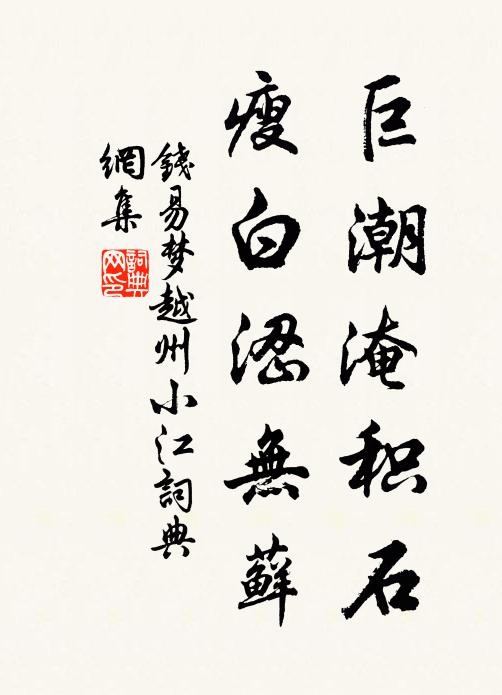 巨潮淹积石
瘦白涩無蘚
錢易梦越州小江詞典
網集
詞典
网印